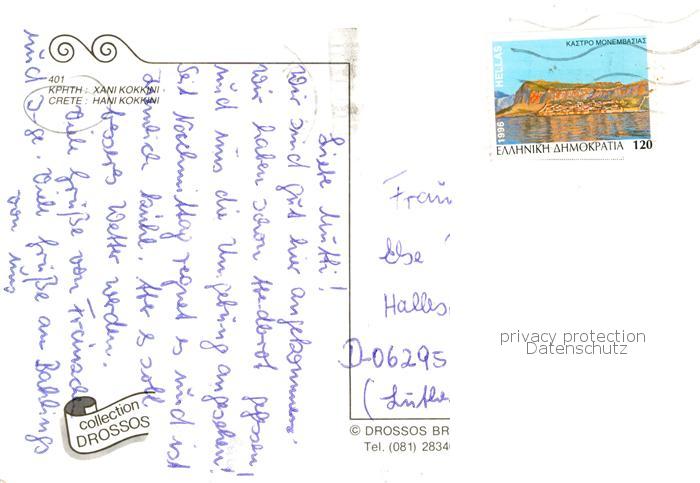 401
ΚΡΗΤΗ : ΧΑΝΙ ΚΟΚΚΙΝΙ
CRETE : HANI KOKKINI
Liebe Mutti!
Wir sind gut hier angekommen.
Wir haben schon gegessen!
und uns die Umgebung angesehen!
Seit Nachmittag regnet es und ist
ziemlich kühl. Aber es soll
besseres Wetter werden.
Viele Grüße von
und Viele Grüße an Bahlings
von uns
collection
DROSSOS
HELLAS
ΚΑΣΤΡΟ ΜΟΝΕΜΒΑΣΙΑΣ
1996
ΕΛΛΗΝΙΚΗ ΔΗΜΟΚΡΑΤΙΑ 120
Frau
Else
Halles
D-06295
(Luthe
privacy protection
Datenschutz
© DROSSOS BR
Tel. (081) 2834